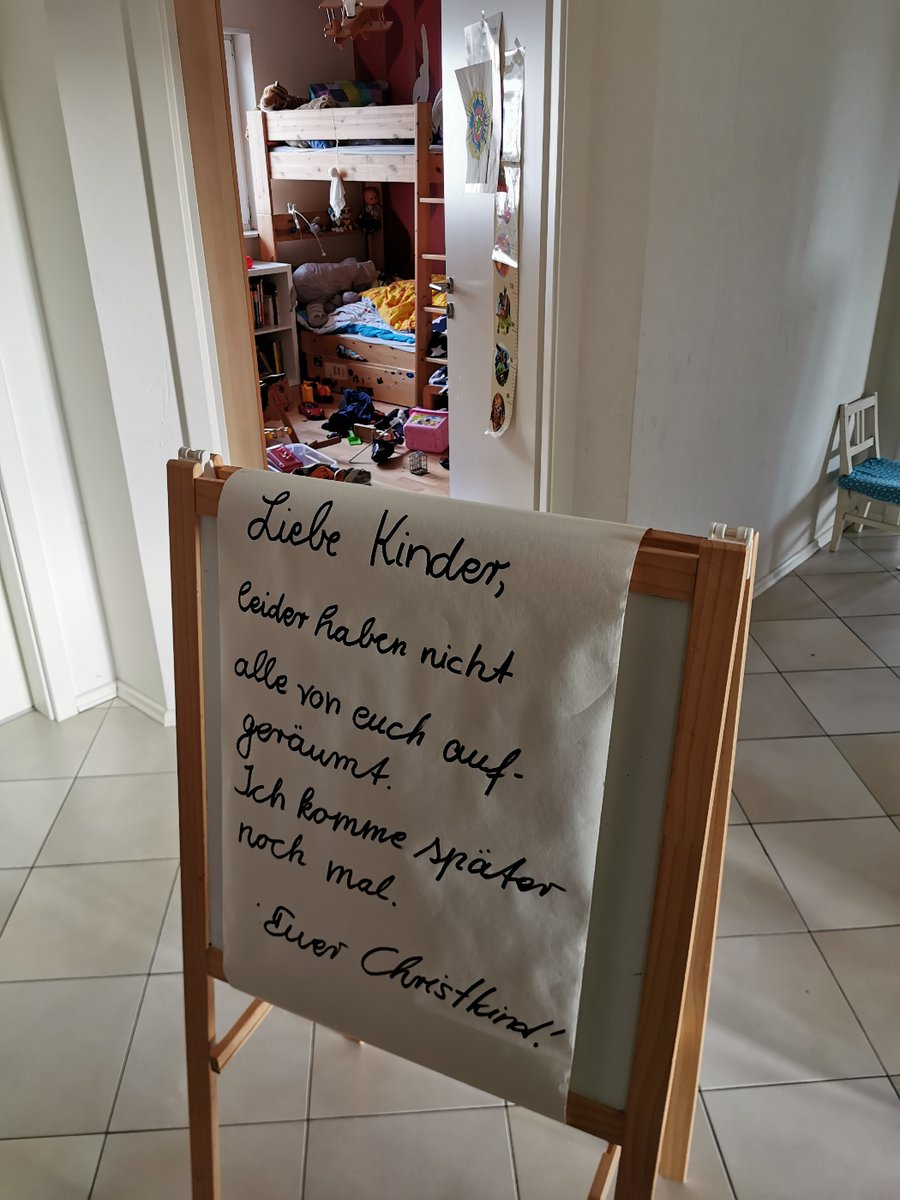 Liebe Kinder,
leider haben nicht
alle von euch auf-
geräumt.
Ich komme später
noch mal.
Euer Christkind!